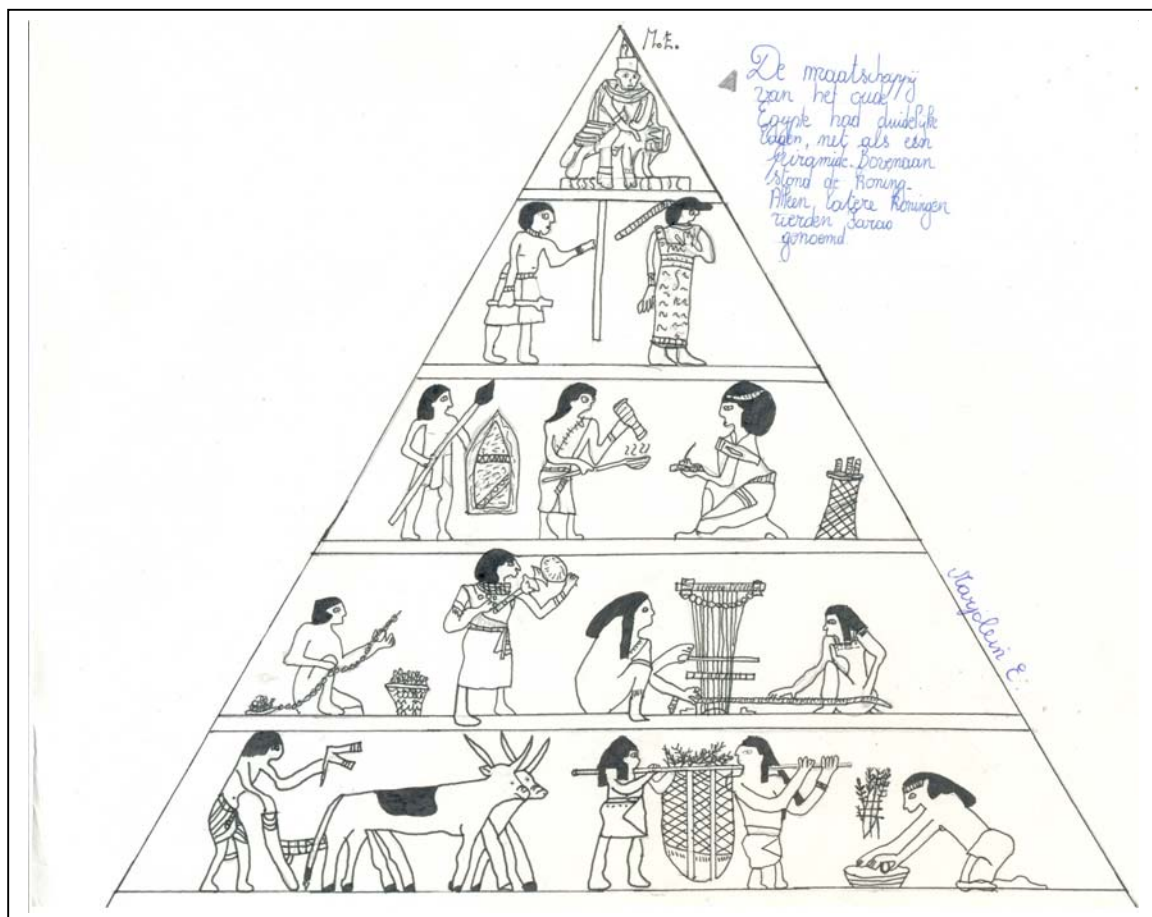 M.E.
De maatschappij
van het oude
Egypte had duidelijke
lagen, net als een
piramide. Bovenaan
stond de koning.
Alleen latere koningen
werden farao
genoemd.
Marjolein E.